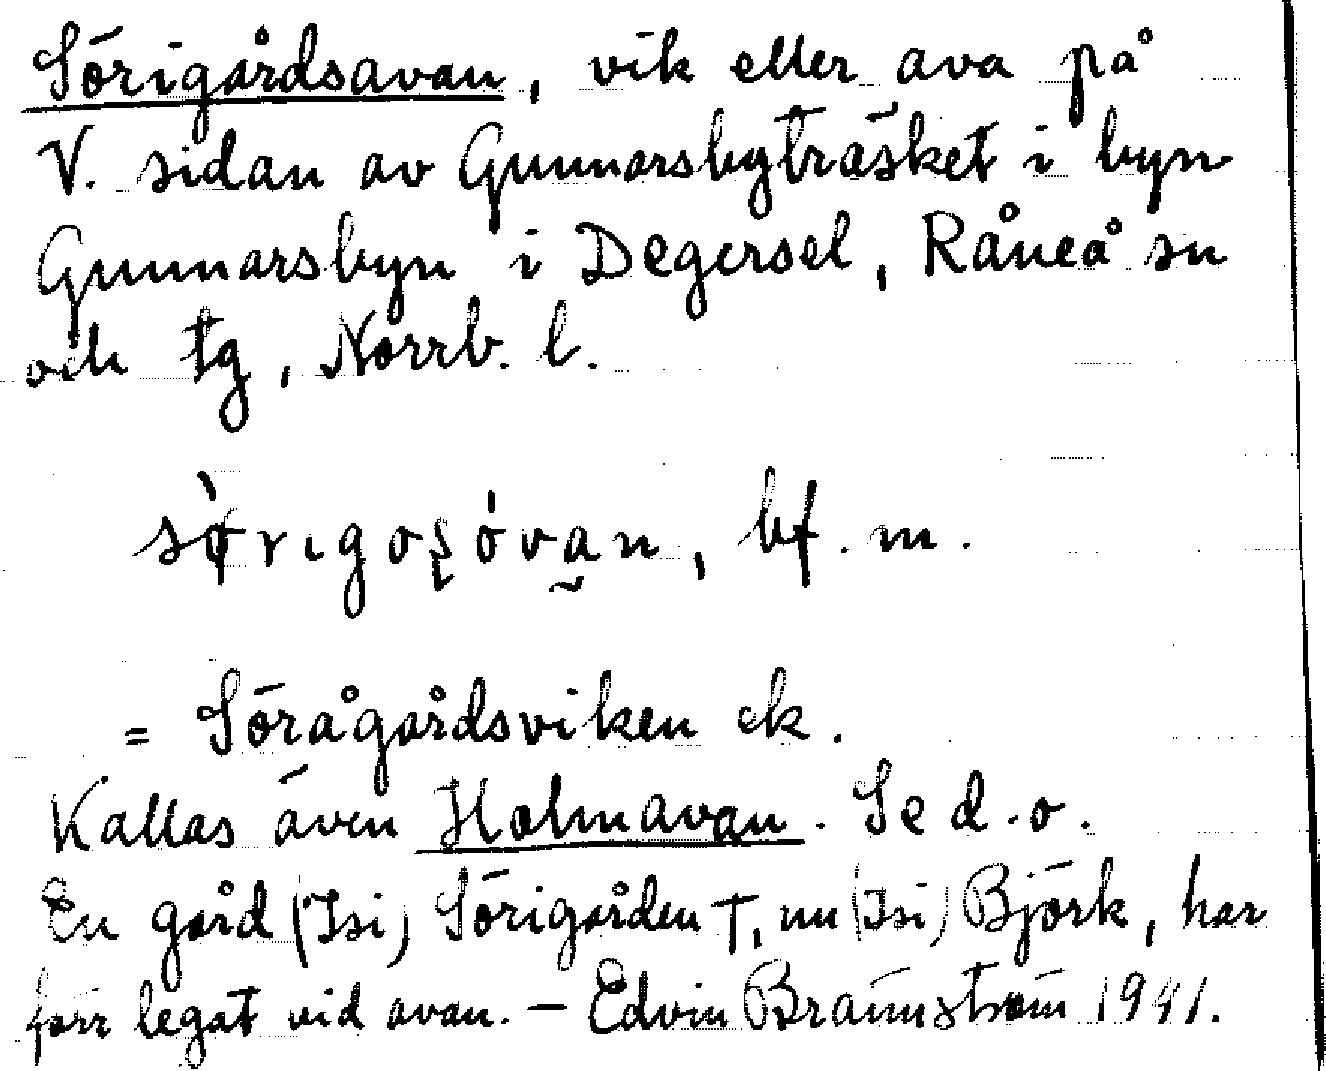 Sörigårdsavan, vik eller ava på
V. sidan av Gunnarsbyträsket i byn
Gunnarsbyn i Degersel, Råneå sn
och tg, Norrb. l.
bf. m.
= Söragårdsviken ek.
Kallas även Holmavan. Se d.o.
En gård (Isi) Sörigården †, nu (Isi) Björk, har
förr legat vid avan. – Edvin Brännström 1941.